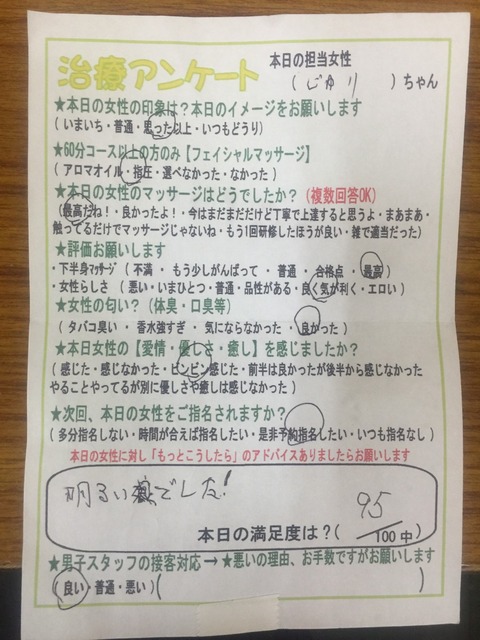 治療アンケート 本日の担当女性
( じゅり )ちゃん
★本日の女性の印象は?本日のイメージをお願いします
(いまいち・普通・思った以上・いつもどうり)
★60分コース以上の方のみ【フェイシャルマッサージ】
(アロマオイル・指圧・選べなかった・なかった)
★本日の女性のマッサージはどうでしたか?(複数回答OK)
(最高だね!・良かったよ!・今はまだまだだけど丁寧で上達すると思うよ・まあまあ・
触ってるだけでマッサージじゃないね・もう1回研修したほうが良い・雑で適当だった)
★評価お願いします
・下半身マッサージ(不満・もう少しがんばって・普通・合格点・最高)
・女性らしさ(悪い・いまひとつ・普通・品性がある・良く気が利く・エロい)
★女性の匂い?(体臭・口臭等)
(タバコ臭い・香水強すぎ・気にならなかった・良かった)
★本日女性の【愛情・優しさ・癒し】を感じましたか?
(感じた・感じなかった・ビンビン感じた・前半は良かったが後半から感じなかった
やることやってるが別に優しさや癒しは感じなかった)
★次回、本日の女性をご指名されますか?
(多分指名しない・時間が合えば指名したい・是非予約指名したい・いつも指名なし)
本日の女性に対し「もっとこうしたら」のアドバイスありましたらお願いします
明るい でした!
本日の満足度は?( 95/100中)
★男子スタッフの接客対応→★悪いの理由、お手数ですがお願いします
(良い・普通・悪い)( )